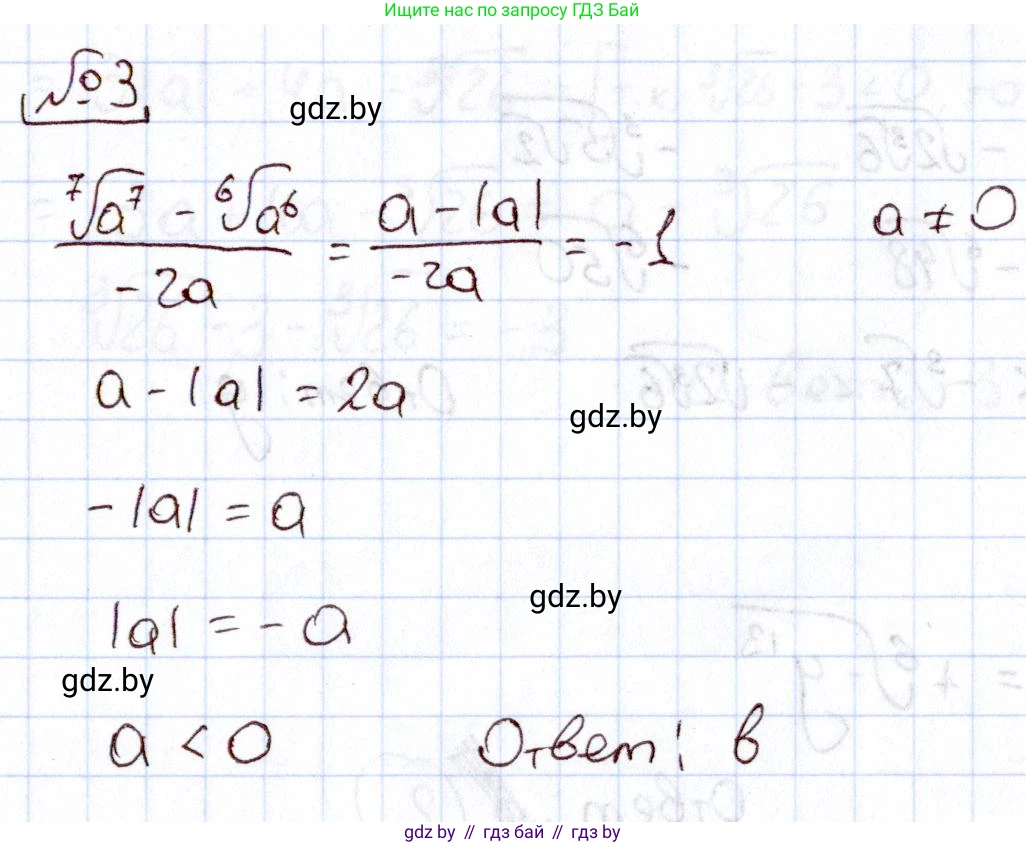 Ищите нас по запросу ГДЗ Бай
№3
gdz.by
(⁷√a⁷ - ⁶√a⁶) / (-2a) = (a - |a|) / (-2a) = -1    a ≠ 0
a - |a| = 2a
gdz.by
-|a| = a
gdz.by
|a| = -a
gdz.by
a < 0    Ответ: в
gdz.by // гдз бай // gdz.by